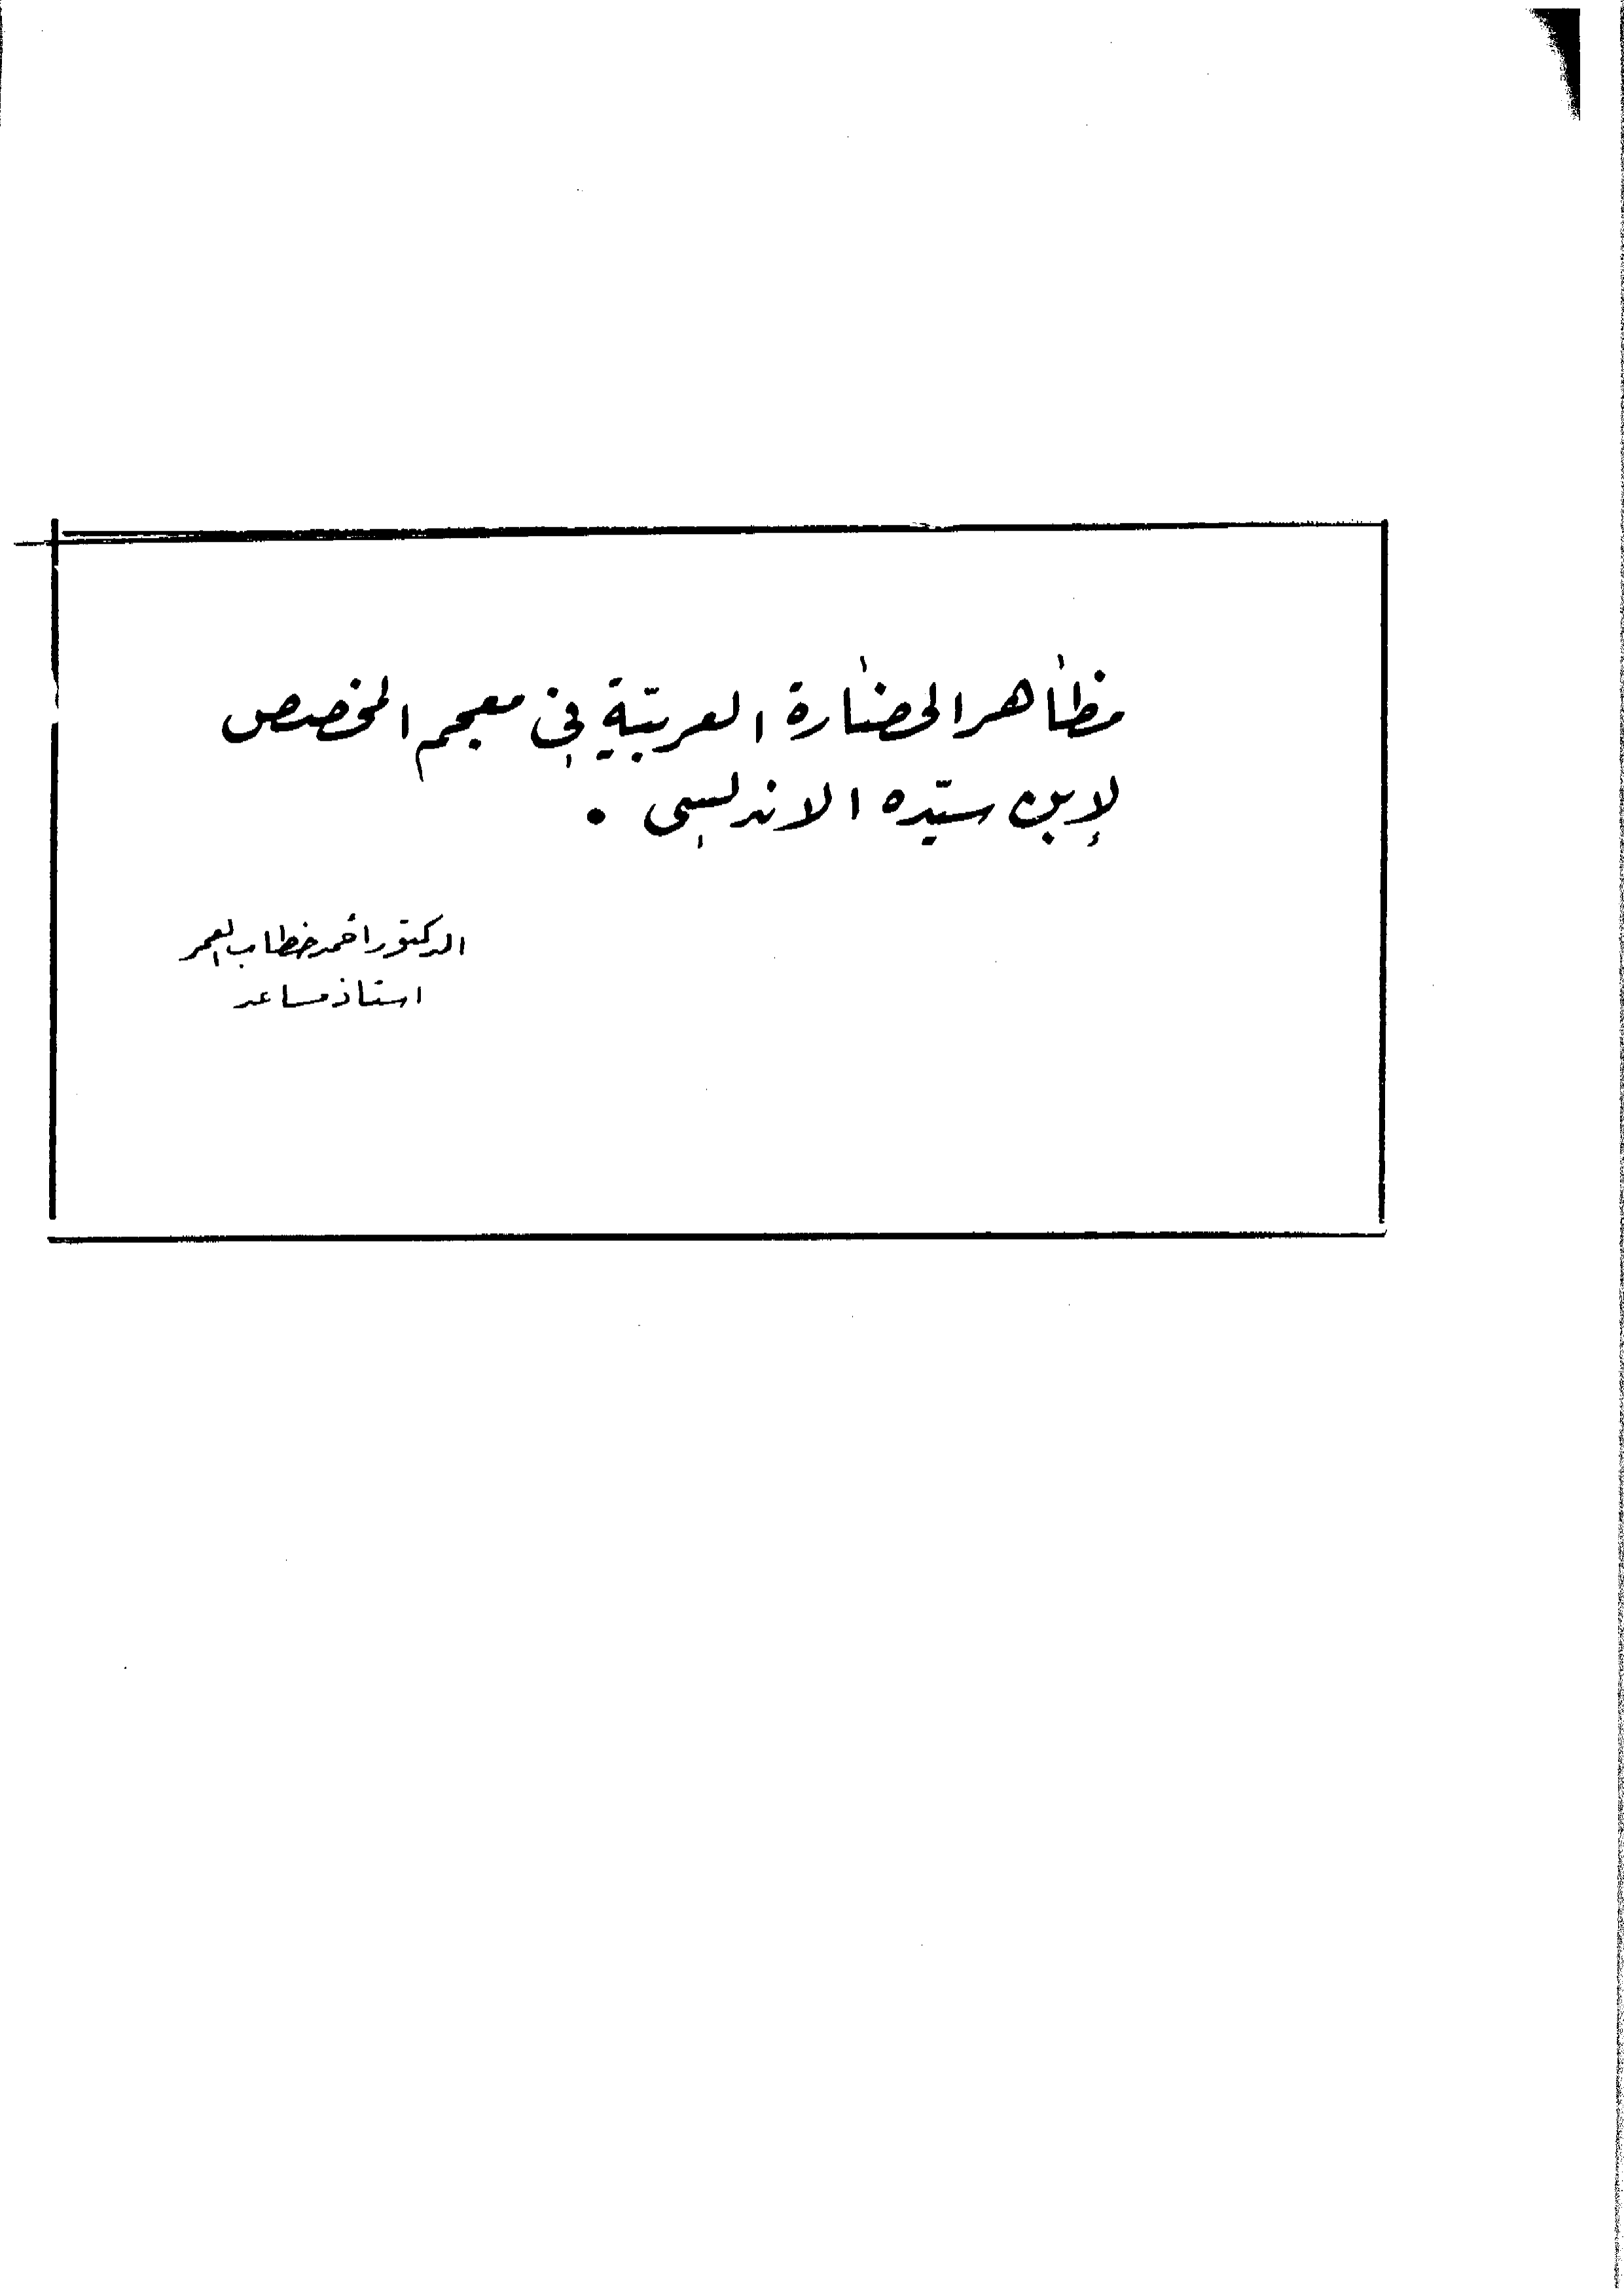 مظاهر الحضارة العربيّة في معجم المخصص
لإبن سيّده الاندلسي .
الدكتور أحمد خطاب العمر
استاذ مساعد